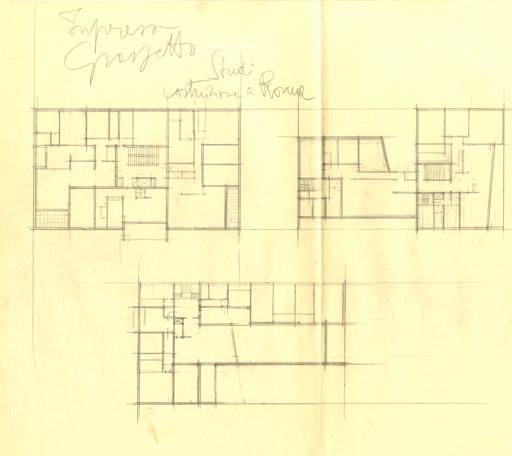 Impresa
Grassetto
Studi
costruzione a Roma